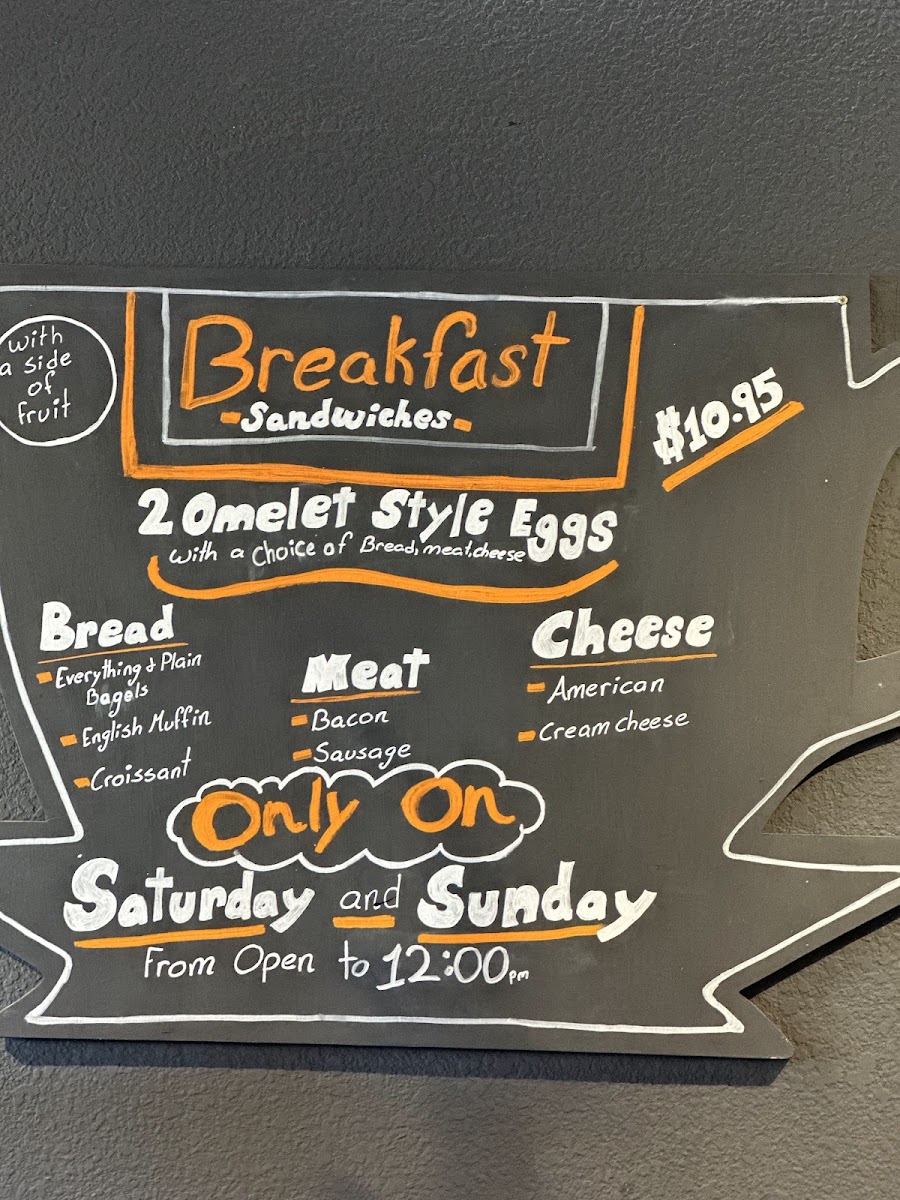 with
a side
of
fruit
Breakfast
-Sandwiches-
$10.95
2 Omelet Style Eggs
with a choice of Bread, meat, cheese
Bread
- Everything & Plain
Bagels
- English Muffin
- Croissant
Meat
- Bacon
- Sausage
Cheese
- American
- Cream cheese
Only On
Saturday and Sunday
From Open to 12:00pm